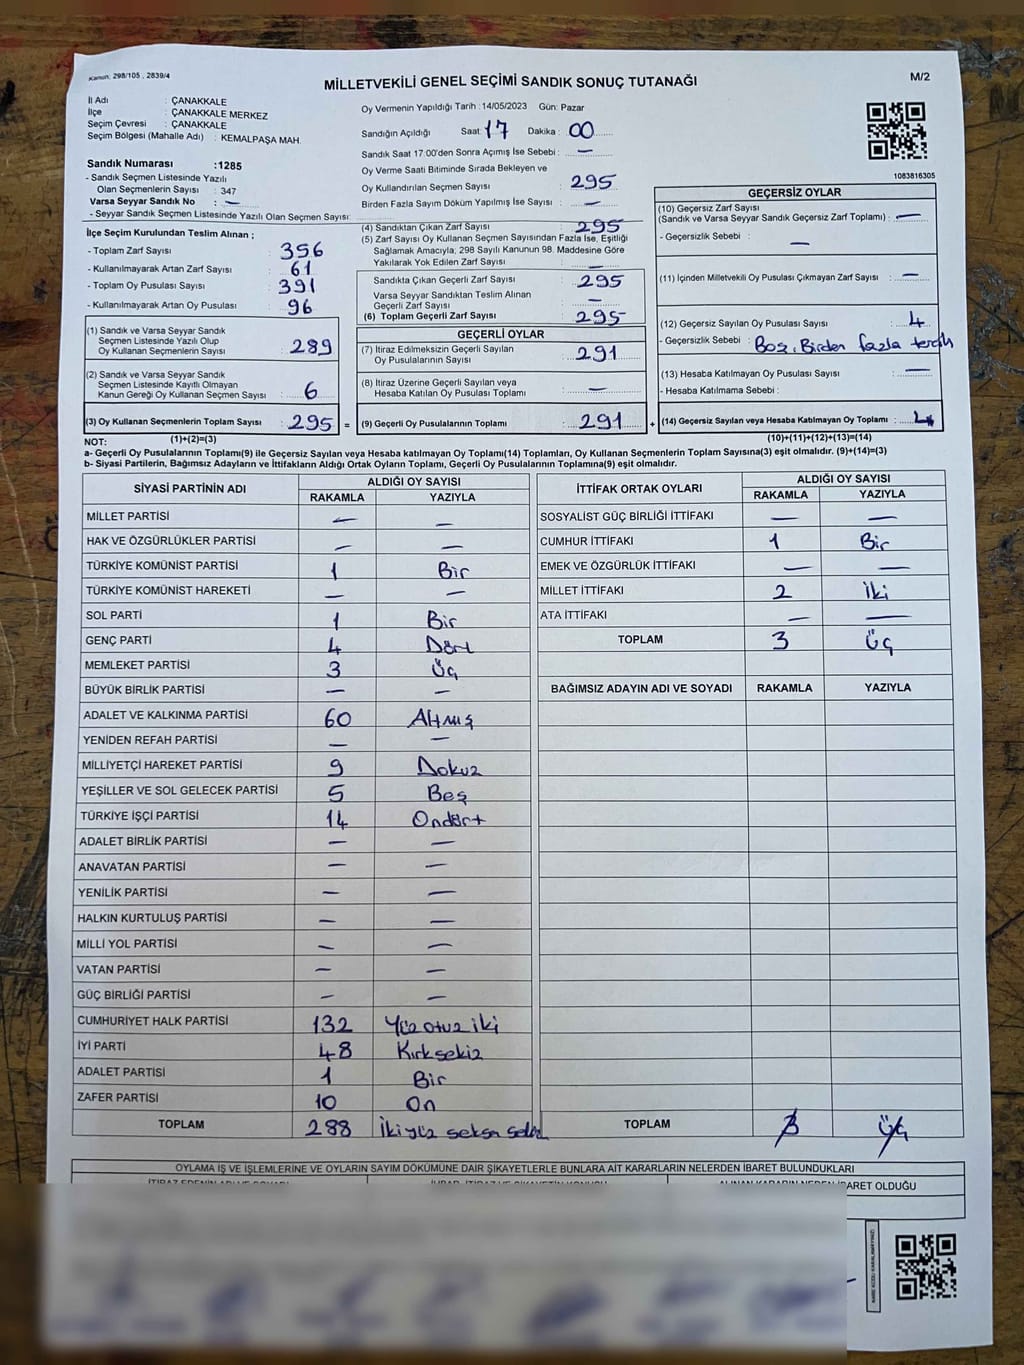 Kanun: 298/105 , 2839/4
MİLLETVEKİLİ GENEL SEÇİMİ SANDIK SONUÇ TUTANAĞI
M/2
İl Adı : ÇANAKKALE
İlçe : ÇANAKKALE MERKEZ
Seçim Çevresi : ÇANAKKALE
Seçim Bölgesi (Mahalle Adı) : KEMALPAŞA MAH.
Sandık Numarası : 1285
- Sandık Seçmen Listesinde Yazılı
Olan Seçmenlerin Sayısı : 347
Varsa Seyyar Sandık No : —
- Seyyar Sandık Seçmen Listesinde Yazılı Olan Seçmen Sayısı:
İlçe Seçim Kurulundan Teslim Alınan ;
- Toplam Zarf Sayısı : 356
- Kullanılmayarak Artan Zarf Sayısı : 61
- Toplam Oy Pusulası Sayısı : 391
- Kullanılmayarak Artan Oy Pusulası : 96
(1) Sandık ve Varsa Seyyar Sandık
Seçmen Listesinde Yazılı Olup
Oy Kullanan Seçmenlerin Sayısı : 289
(2) Sandık ve Varsa Seyyar Sandık
Seçmen Listesinde Kayıtlı Olmayan
Kanun Gereği Oy Kullanan Seçmen Sayısı : 6
(3) Oy Kullanan Seçmenlerin Toplam Sayısı : 295 =
(1)+(2)=(3)
Oy Vermenin Yapıldığı Tarih : 14/05/2023 Gün: Pazar
Sandığın Açıldığı Saat : 17 Dakika : 00
Sandık Saat 17:00'den Sonra Açımış İse Sebebi : —
Oy Verme Saati Bitiminde Sırada Bekleyen ve
Oy Kullandırılan Seçmen Sayısı : 295
Birden Fazla Sayım Döküm Yapılmış İse Sayısı : —
(4) Sandıktan Çıkan Zarf Sayısı : 295
(5) Zarf Sayısı Oy Kullanan Seçmen Sayısından Fazla İse, Eşitliği
Sağlamak Amacıyla, 298 Sayılı Kanunun 98. Maddesine Göre
Yakılarak Yok Edilen Zarf Sayısı : —
Sandıkta Çıkan Geçerli Zarf Sayısı : 295
Varsa Seyyar Sandıktan Teslim Alınan
Geçerli Zarf Sayısı : —
(6) Toplam Geçerli Zarf Sayısı : 295
GEÇERLİ OYLAR
(7) İtiraz Edilmeksizin Geçerli Sayılan
Oy Pusulalarının Sayısı : 291
(8) İtiraz Üzerine Geçerli Sayılan veya
Hesaba Katılan Oy Pusulası Toplamı : —
(9) Geçerli Oy Pusulalarının Toplamı : 291 +
1083816305
GEÇERSİZ OYLAR
(10) Geçersiz Zarf Sayısı
(Sandık ve Varsa Seyyar Sandık Geçersiz Zarf Toplamı) : —
- Geçersizlik Sebebi : —
(11) İçinden Milletvekili Oy Pusulası Çıkmayan Zarf Sayısı : —
(12) Geçersiz Sayılan Oy Pusulası Sayısı : 4
- Geçersizlik Sebebi : Boş, Birden fazla tercih
(13) Hesaba Katılmayan Oy Pusulası Sayısı : —
- Hesaba Katılmama Sebebi :
(14) Geçersiz Sayılan veya Hesaba Katılmayan Oy Toplamı : 4
(10)+(11)+(12)+(13)=(14)
NOT:
a- Geçerli Oy Pusulalarının Toplamı(9) ile Geçersiz Sayılan veya Hesaba Katılmayan Oy Toplamı(14) Toplamları, Oy Kullanan Seçmenlerin Toplam Sayısına(3) eşit olmalıdır. (9)+(14)=(3)
b- Siyasi Partilerin, Bağımsız Adayların ve İttifakların Aldığı Ortak Oyların Toplamı, Geçerli Oy Pusulalarının Toplamına(9) eşit olmalıdır.
SİYASİ PARTİNİN ADI ALDIĞI OY SAYISI
RAKAMLA YAZIYLA
MİLLET PARTİSİ — —
HAK VE ÖZGÜRLÜKLER PARTİSİ — —
TÜRKİYE KOMÜNİST PARTİSİ 1 Bir
TÜRKİYE KOMÜNİST HAREKETİ — —
SOL PARTİ 1 Bir
GENÇ PARTİ 4 Dört
MEMLEKET PARTİSİ 3 Üç
BÜYÜK BİRLİK PARTİSİ — —
ADALET VE KALKINMA PARTİSİ 60 Altmış
YENİDEN REFAH PARTİSİ — —
MİLLİYETÇİ HAREKET PARTİSİ 9 Dokuz
YEŞİLLER VE SOL GELECEK PARTİSİ 5 Beş
TÜRKİYE İŞÇİ PARTİSİ 14 Ondört
ADALET BİRLİK PARTİSİ — —
ANAVATAN PARTİSİ — —
YENİLİK PARTİSİ — —
HALKIN KURTULUŞ PARTİSİ — —
MİLLİ YOL PARTİSİ — —
VATAN PARTİSİ — —
GÜÇ BİRLİĞİ PARTİSİ — —
CUMHURİYET HALK PARTİSİ 132 Yüz otuz iki
İYİ PARTİ 48 Kırk sekiz
ADALET PARTİSİ 1 Bir
ZAFER PARTİSİ 10 On
TOPLAM 288 İkiyüz seksen
İTTİFAK ORTAK OYLARI ALDIĞI OY SAYISI
RAKAMLA YAZIYLA
SOSYALİST GÜÇ BİRLİĞİ İTTİFAKI — —
CUMHUR İTTİFAKI 1 Bir
EMEK VE ÖZGÜRLÜK İTTİFAKI — —
MİLLET İTTİFAKI 2 İki
ATA İTTİFAKI — —
TOPLAM 3 Üç
BAĞIMSIZ ADAYIN ADI VE SOYADI RAKAMLA YAZIYLA
TOPLAM 3 Üç
OYLAMA İŞ VE İŞLEMLERİNE VE OYLARIN SAYIM DÖKÜMÜNE DAİR ŞİKAYETLERLE BUNLARA AİT KARARLARIN NELERDEN İBARET BULUNDUKLARI
İBARET OLDUĞU